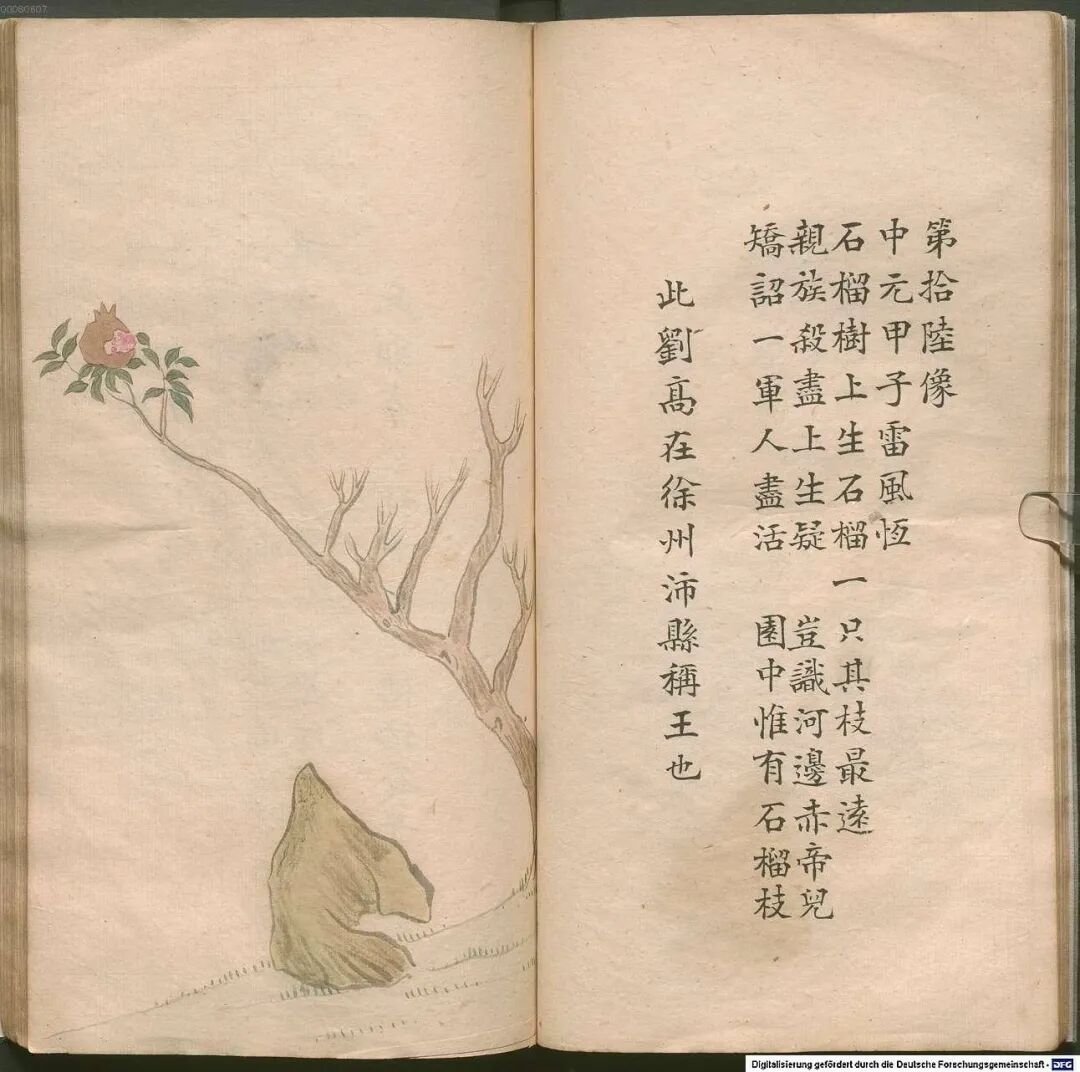 00080607
第拾陸像
中元甲子雷風恆
石榴樹上生石榴一只其枝最遠
親族殺盡上生疑 豈識河邊赤帝兒
矯詔一軍人盡活 園中惟有石榴枝
此劉髙在徐州沛縣稱王也
Digitalisierung gefördert durch die Deutsche Forschungsgemeinschaft - DFG